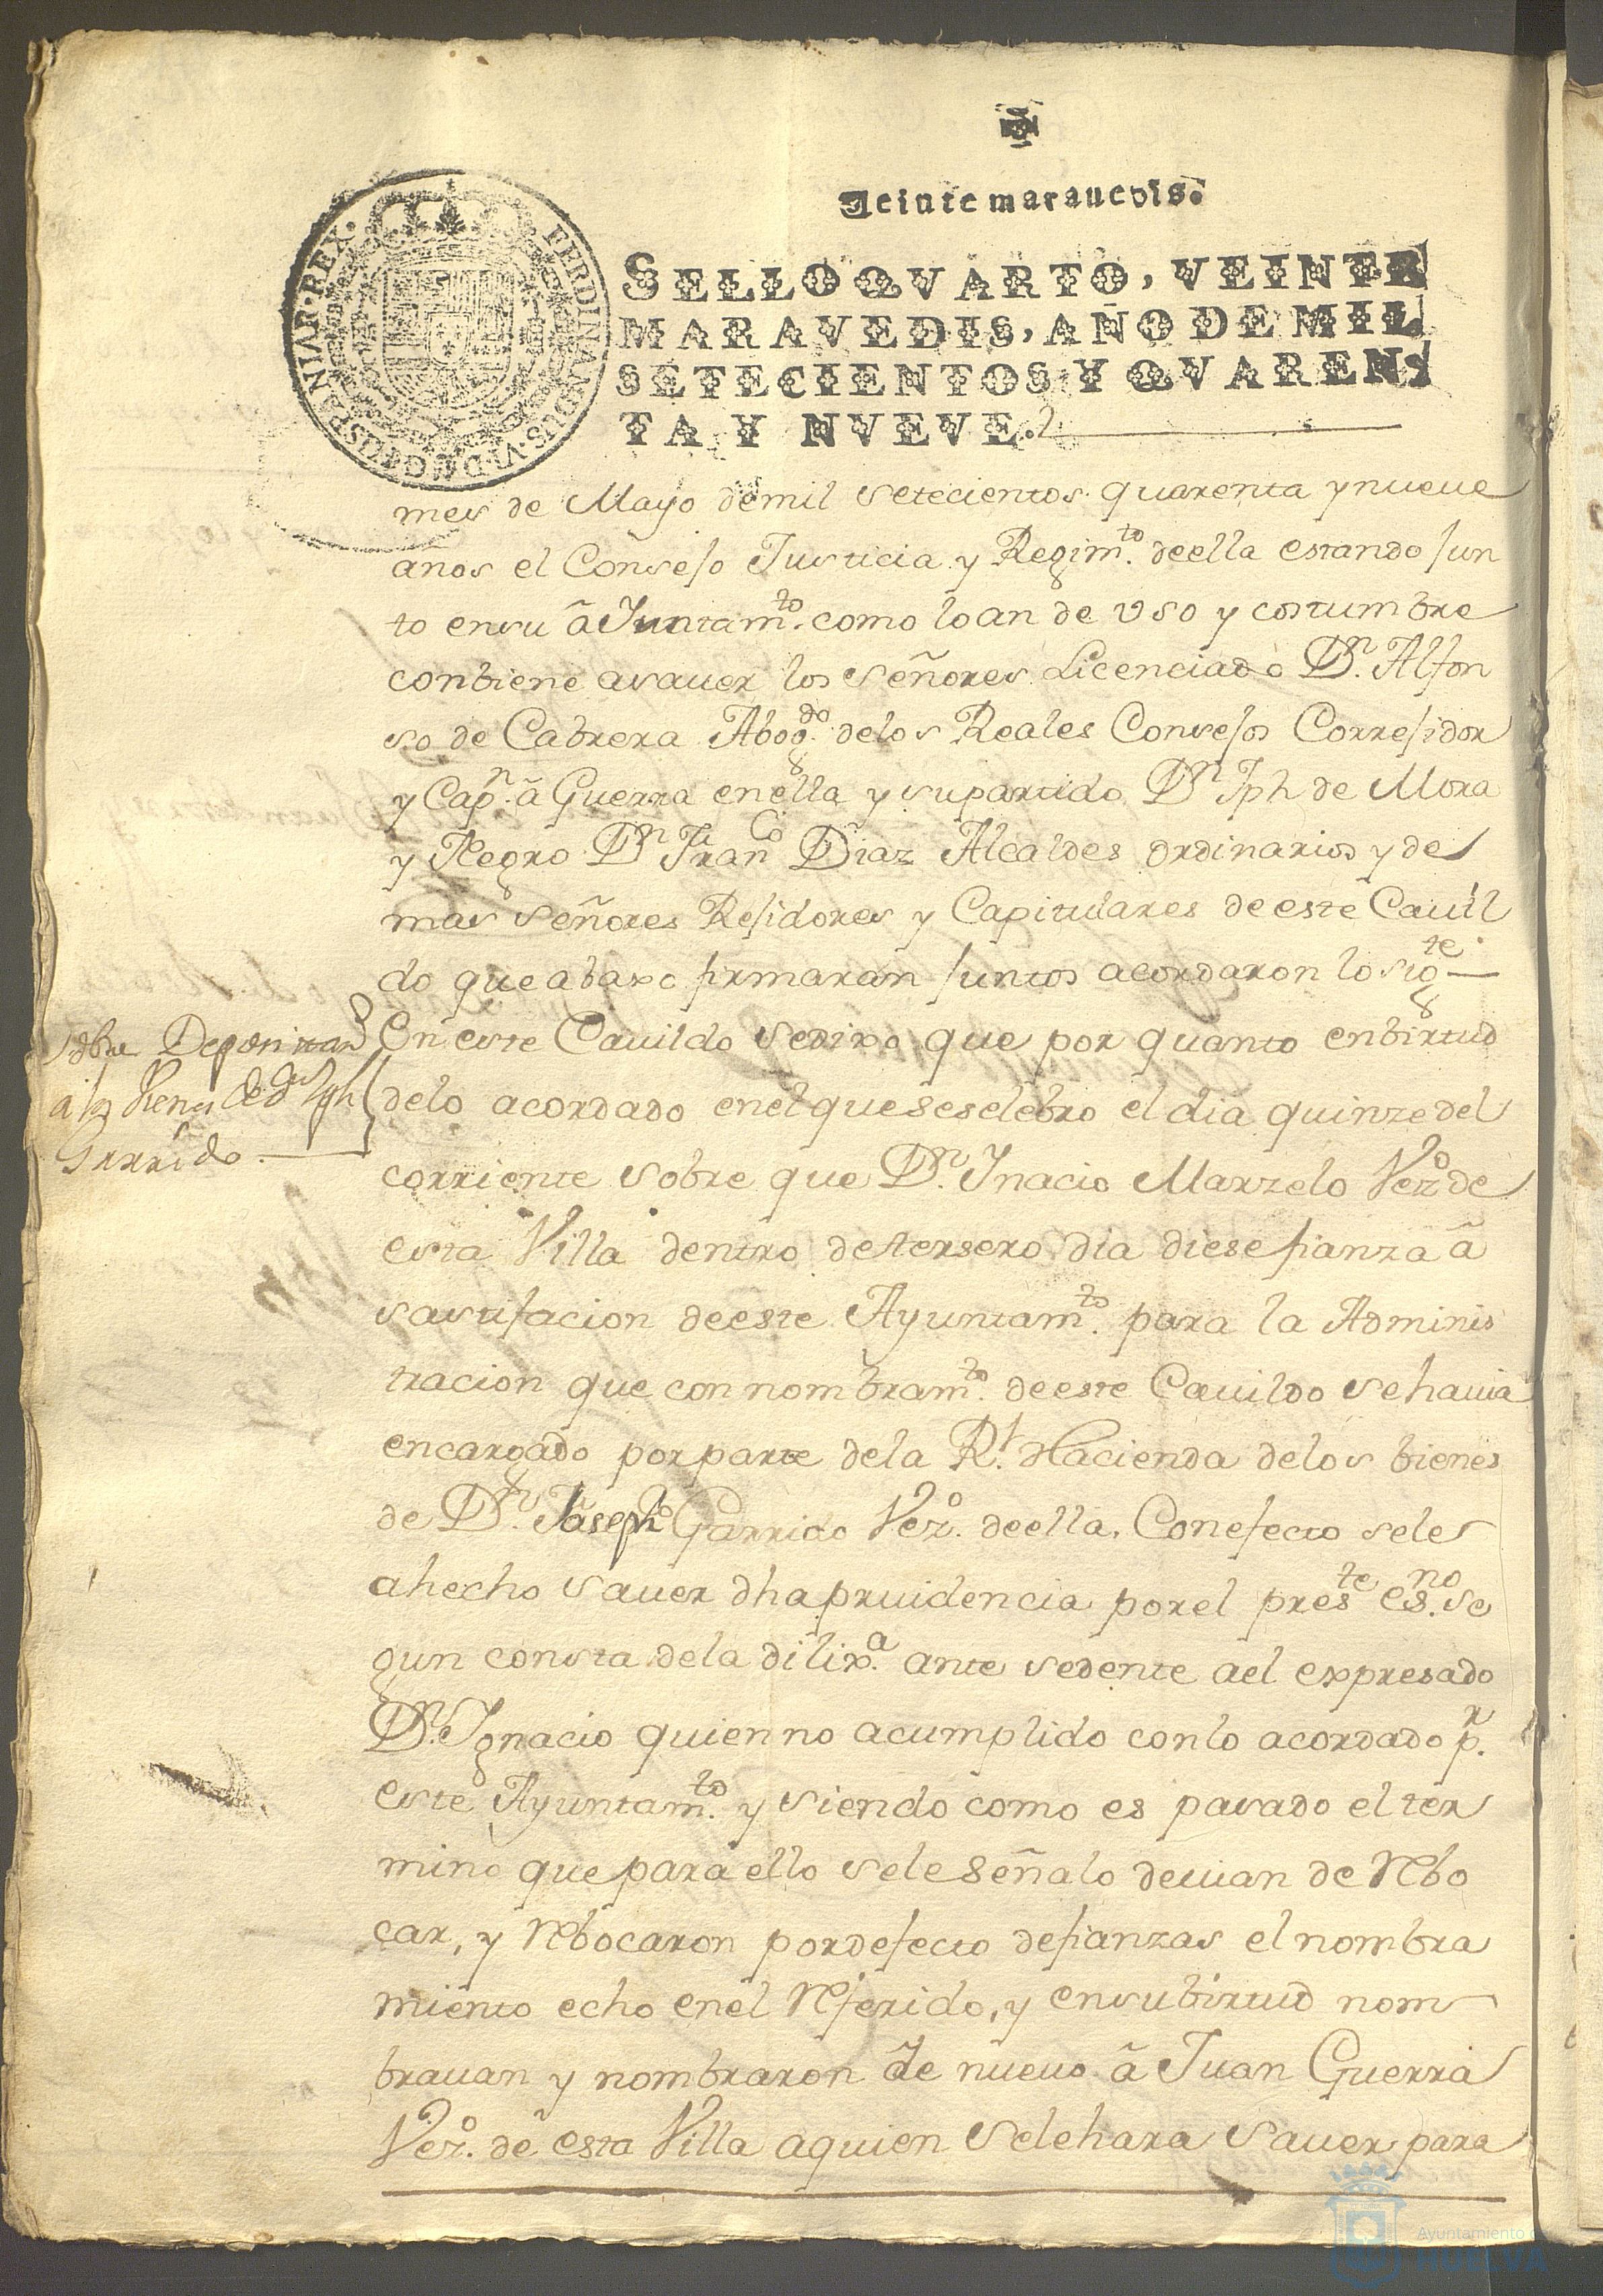 Veinte maravedis.
FERDINANDUS·VI·D·G·HISPANIAR·REX·
SELLO QVARTO, VEINTE
MARAVEDIS, AÑO DE MIL
SETECIENTOS Y QVAREN-
TA Y NVEVE.
mes de Mayo de mil setecientos quarenta y nueve
años el Consejo Justicia y Regim.to de ella estando jun
to en su â Juntam.to como lo an de uso y costumbre
conbiene a saver los señores Licenciado D.n Alfon
so de Cabrera Abog.do de los Reales Consejos Correjidor
y Cap.n â Guerra en ella y su partido D.n Jph de Mora
y Negro D.n Fran.co Diaz Alcaldes ordinarios y de
mas señores Rejidores y Capitulares de este Cavil
do que abaxo firmaran juntos acordaron lo sig.te
Sobre Depositar
a los bienes de D.n Jph
Garrido
En este Cavildo se dixo que por quanto en birtud
de lo acordado en el que se selebro el dia quinze del
corriente sobre que D.n Jnacio Marzelo Vez.o de
esta Villa dentro de tersero dia diese fianza â
sastifacion de este Ayuntam.to para la Adminis
tracion que con nombram.to de este Cavildo se havia
encargado por parte de la R.l Hacienda de los bienes
de D.n Joseph Garrido Vez.o de ella, Con efecto se le
a hecho saver dha prvidencia por el pres.te es.no se
gun consta de la dilix.a ante sedente a el expresado
D.n Jgnacio quien no a cumplido con lo acordado p.r
este Ayuntam.to y siendo como es pasado el ter
mino que para ello se le señalo devian de Rebo
car, y Rebocaron por defecto de fianzas el nombra
miento echo en el Referido, y en su birtud nom
bravan y nombraron de nuevo â Juan Guerra
Vez.o de esta Villa a quien se le hara saver para
Ayuntamiento de
HUELVA